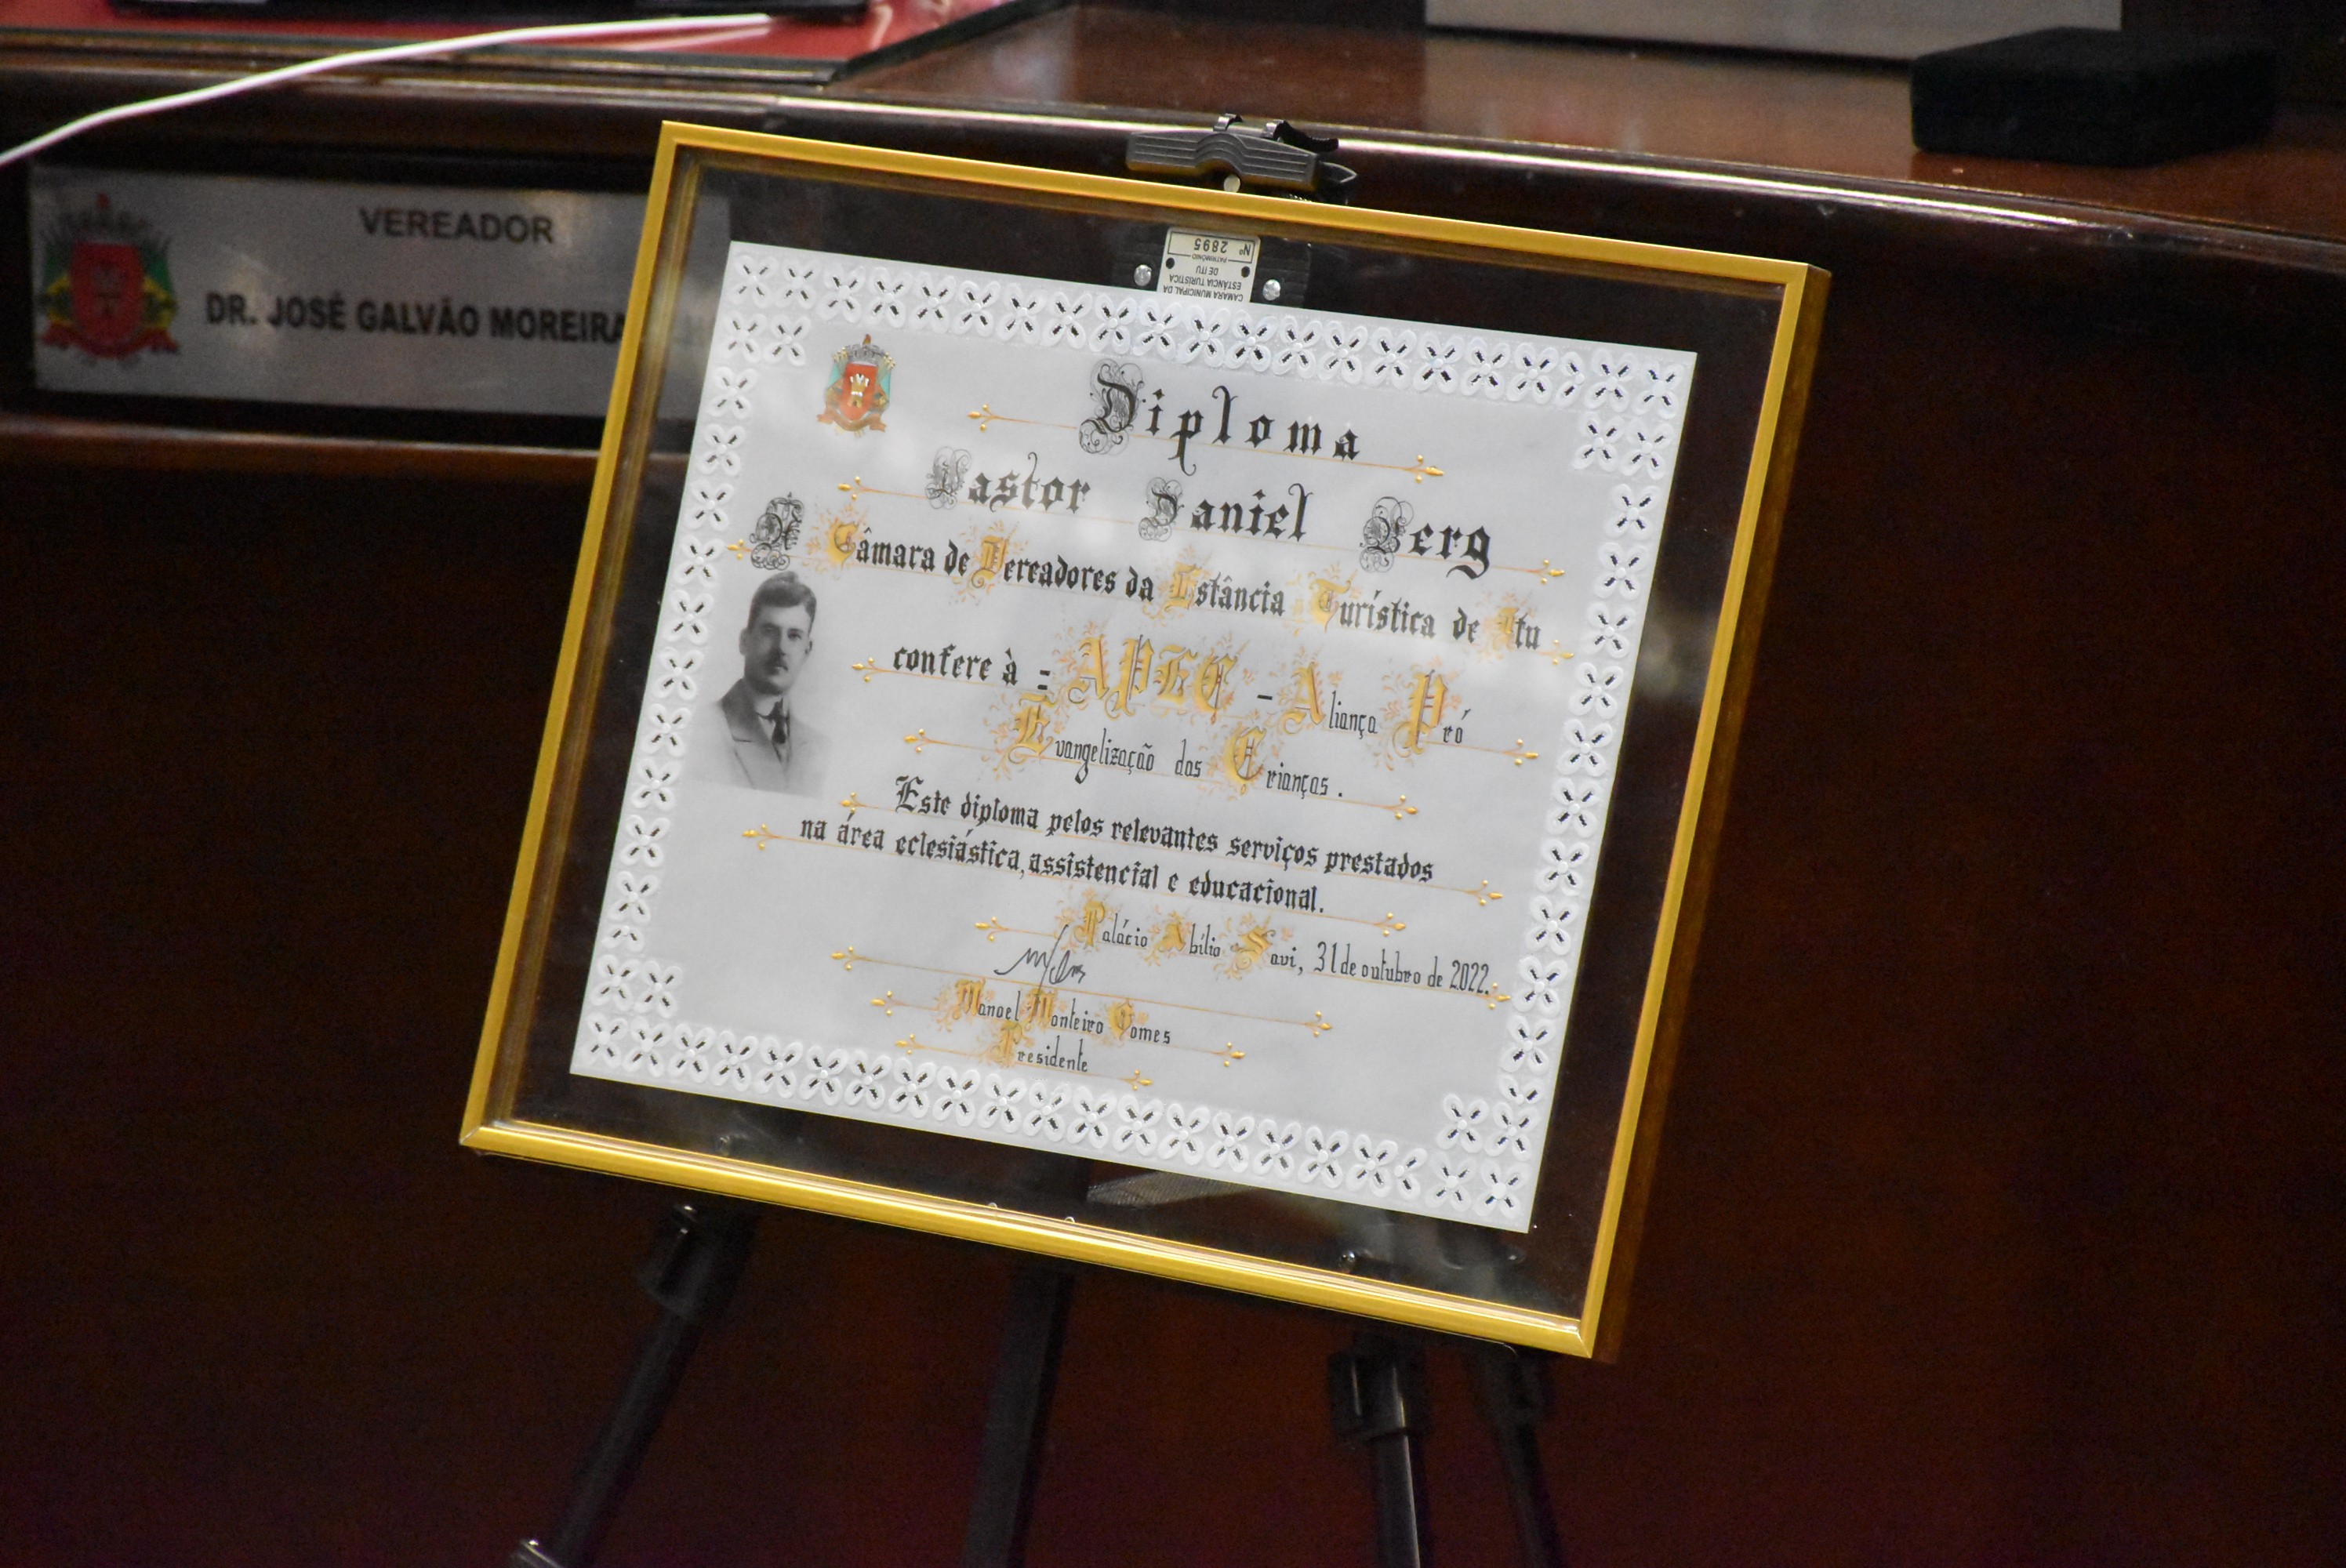 VEREADOR
DR. JOSÉ GALVÃO MOREIRA
CÂMARA MUNICIPAL DA
ESTÂNCIA TURÍSTICA
DE ITU
PATRIMÔNIO
Nº 2895
Diploma
Pastor Daniel Berg
A Câmara de Vereadores da Estância Turística de Itu
confere à = APEC - Aliança Pró
Evangelização das Crianças.
Este diploma pelos relevantes serviços prestados
na área eclesiástica, assistencial e educacional.
Palácio Abílio Savi, 31 de outubro de 2022.
Manoel Monteiro Gomes
Presidente